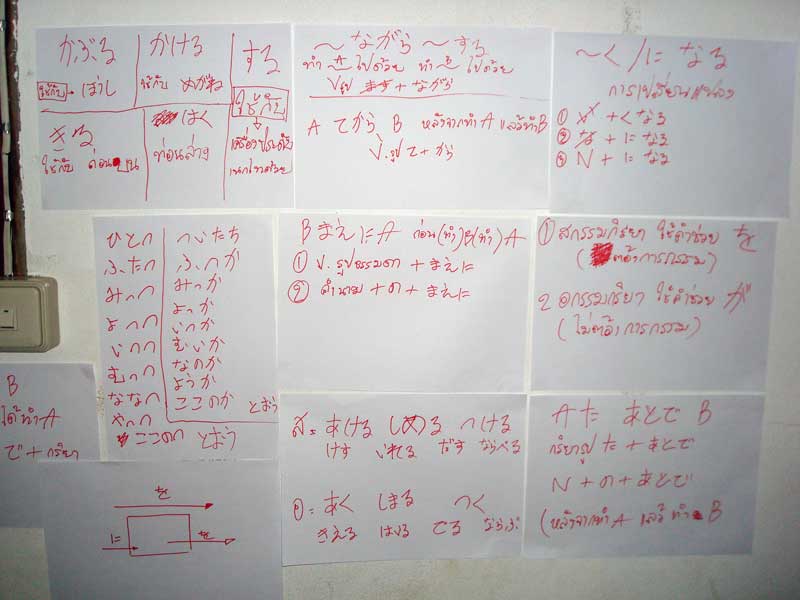 かぶる かける する
ใช้กับ → ぼうし ใช้กับ めがね ใช้กับ
きる はく เครื่องประดับ
ใช้กับ ท่อนบน ท่อนล่าง เนกไทด้วย
〜ながら 〜する
ทำ A ไปด้วย ทำ B ไปด้วย
V.รูป ます + ながら
A てから B หลังจากทำ A แล้วทำ B
V.รูป て + から
〜く/に なる
การเปลี่ยนแปลง
① い +くなる
② な + に なる
③ N + に なる
ひとつ ついたち
ふたつ ふつか
みっつ みっか
よっつ よっか
いつつ いつか
むっつ むいか
ななつ なのか
やっつ ようか
ここのつ とおう
ここのか とおう
Bまえに A ก่อน(ทำ)B(ทำ)A
① V. รูปธรรมดา + まえに
② คำนาม + の + まえに
① สกรรมกริยา ใช้คำช่วย を
(ต้องการกรรม)
2 อกรรมกริยา ใช้คำช่วย が
(ไม่ต้องการกรรม)
B
ได้ทำ A
で + กริยา
を
に を
ส = あける しめる つける
けす いれる だす ならべる
อ = あく しまる つく
きえる はいる でる ならぶ
A た あとで B
กริยารูป た + あとで
N + の + あとで
(หลังจากทำ A แล้ว ทำ B